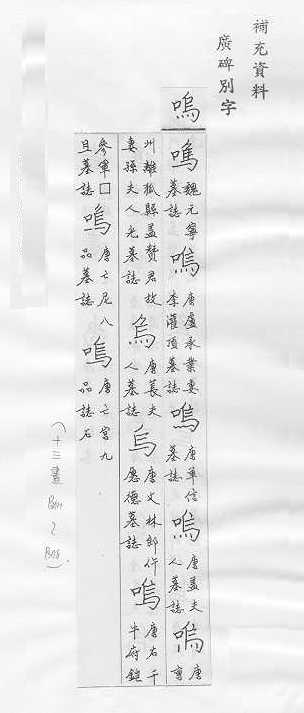 補充資料
廣碑別字
嗚
嗚魏元寧墓誌嗚唐盧承業妻李灌頂墓誌嗚唐單信墓誌嗚唐孟夫人墓誌嗚唐曹
州離狐縣孟贊君故妻孫夫人光墓誌烏唐長夫人墓誌烏唐文林郎仵愿德墓誌嗚唐右千牛府鎧
參軍□旦墓誌嗚唐亡尼八品墓誌嗚唐亡宮九品誌石
(十三畫